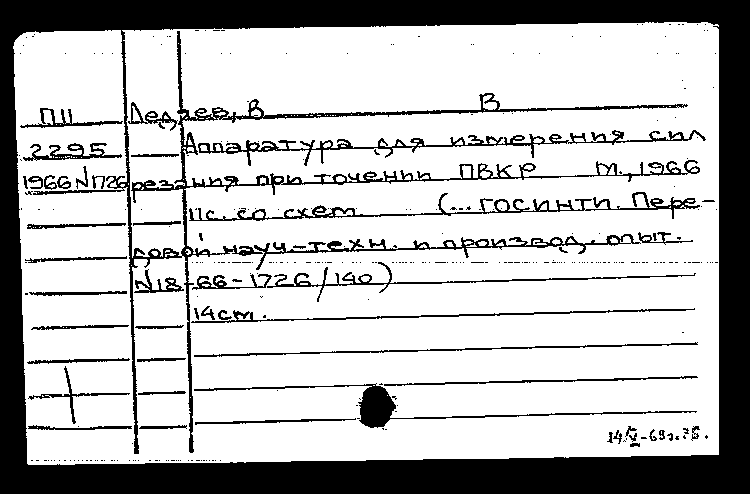 П11 Ледяев, В В
2295 Аппаратура для измерения сил
1966 N1726 резания при точении ПВКР М., 1966
11с. со схем. (... ГОСИНТИ. Пере-
довой науч-техн. и производ. опыт.
N18-66-1726/140)
14см.
14/V-69г.